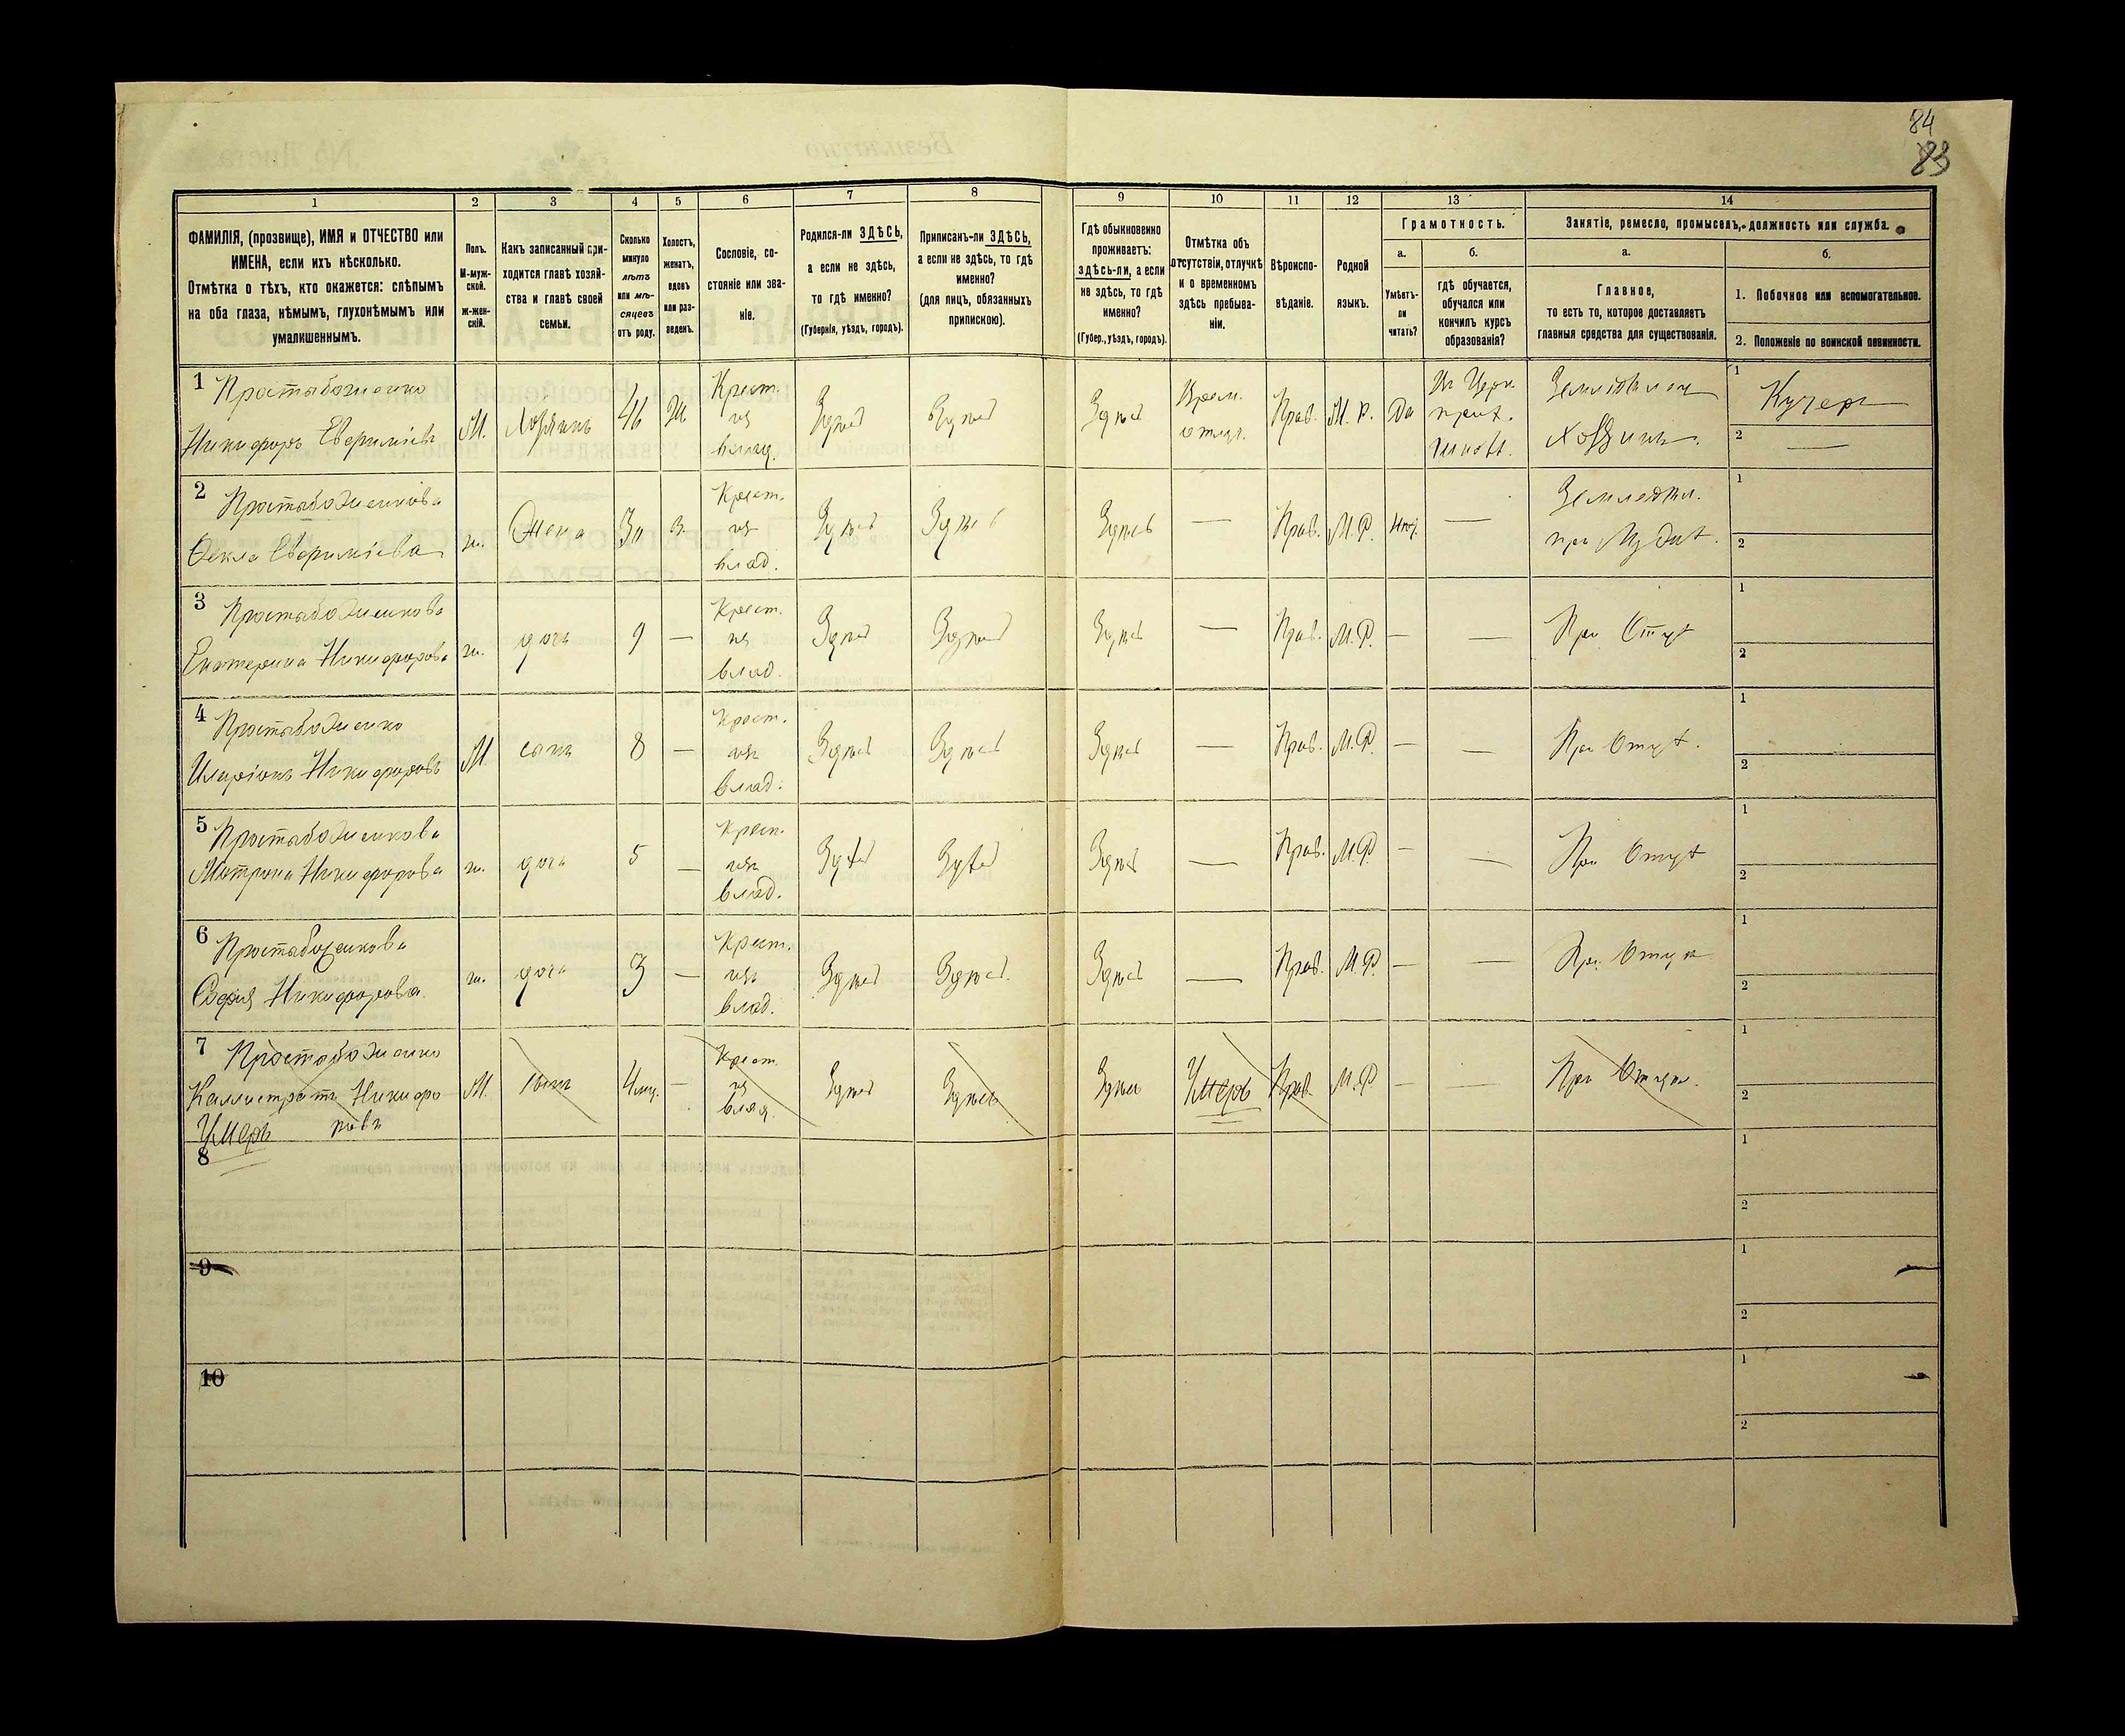 84
83
1
2
3
4
5
6
7
8
9
10
11
12
13
14
ФАМИЛІЯ, (прозвище), ИМЯ и ОТЧЕСТВО или
ИМЕНА, если ихъ нѣсколько.
Отмѣтка о тѣхъ, кто окажется: слѣпымъ
на оба глаза, нѣмымъ, глухонѣмымъ или
умалишеннымъ.
Полъ.
М-муж-
ской.
ж-жен-
скій.
Какъ записанный при-
ходится главѣ хозяй-
ства и главѣ своей
семьи.
Сколько
минуло
лѣтъ
или мѣ-
сяцевъ
отъ роду.
Холостъ,
женатъ,
вдовъ
или раз-
веденъ.
Сословіе, со-
стояніе или зва-
ніе.
Родился-ли ЗДѢСЬ,
а если не здѣсь,
то гдѣ именно?
(Губернія, уѣздъ, городъ).
Приписанъ-ли ЗДѢСЬ,
а если не здѣсь, то гдѣ
именно?
(для лицъ, обязанныхъ
припискою).
Гдѣ обыкновенно
проживаетъ:
здѣсь-ли, а если
не здѣсь, то гдѣ
именно?
(Губер., уѣздъ, городъ).
Отмѣтка объ
отсутствіи, отлучкѣ
и о временномъ
здѣсь пребыва-
ніи.
Вѣроиспо-
вѣданіе.
Родной
языкъ.
Грамотность.
а.
Умѣетъ-
ли
читать?
б.
гдѣ обучается,
обучался или
кончилъ курсъ
образованія?
Занятіе, ремесло, промыселъ, должность или служба.
а.
Главное,
то есть то, которое доставляетъ
главныя средства для существованія.
б.
1. Побочное или вспомогательное.
2. Положеніе по воинской повинности.
1 Простибоженко
Никифоръ
М. Хозяинъ Крест. из влад. Здѣсь Здѣсь
Здѣсь Прав. М. Р. Да Хозяинъ.
1 Кучеръ
2 —
2 Простибоженкова
Ѳекла
ж. Жена З. Крест. из влад. Здѣсь Здѣсь
Здѣсь — Прав. М.Р. —
1
2
3 Простибоженкова
Екатерина Никифорова
ж. дочь 9 — Крест. из влад. Здѣсь Здѣсь
Здѣсь — Прав. М.Р. — — При Отцѣ
1
2
4 Простибоженко
Иларіонъ Никифоровъ
М. сынъ 8 — Крест. изъ влад. Здѣсь Здѣсь
Здѣсь — Прав. М.Р. — — При Отцѣ.
1
2
5 Простибоженкова
Матрона Никифорова
ж. дочь 5 — Крест. изъ влад. Здѣсь Здѣсь
Здѣсь — Прав. М.Р — — При Отцѣ
1
2
6 Простибоженкова
Софія Никифорова.
ж. дочь 3 — Крест. изъ влад. Здѣсь Здѣсь.
Здѣсь — Прав. М.Р. — — При Отцѣ
1
2
7 Простибоженко
Каллистратъ Никифо
ровъ
Умеръ
М. сынъ 4 мц. — Крест. из влад. Здѣсь Здѣсь
Здѣсь Умеръ Прав. М.Р — — При Отцѣ.
1
2
8
1
2
9
1
2
10
1
2